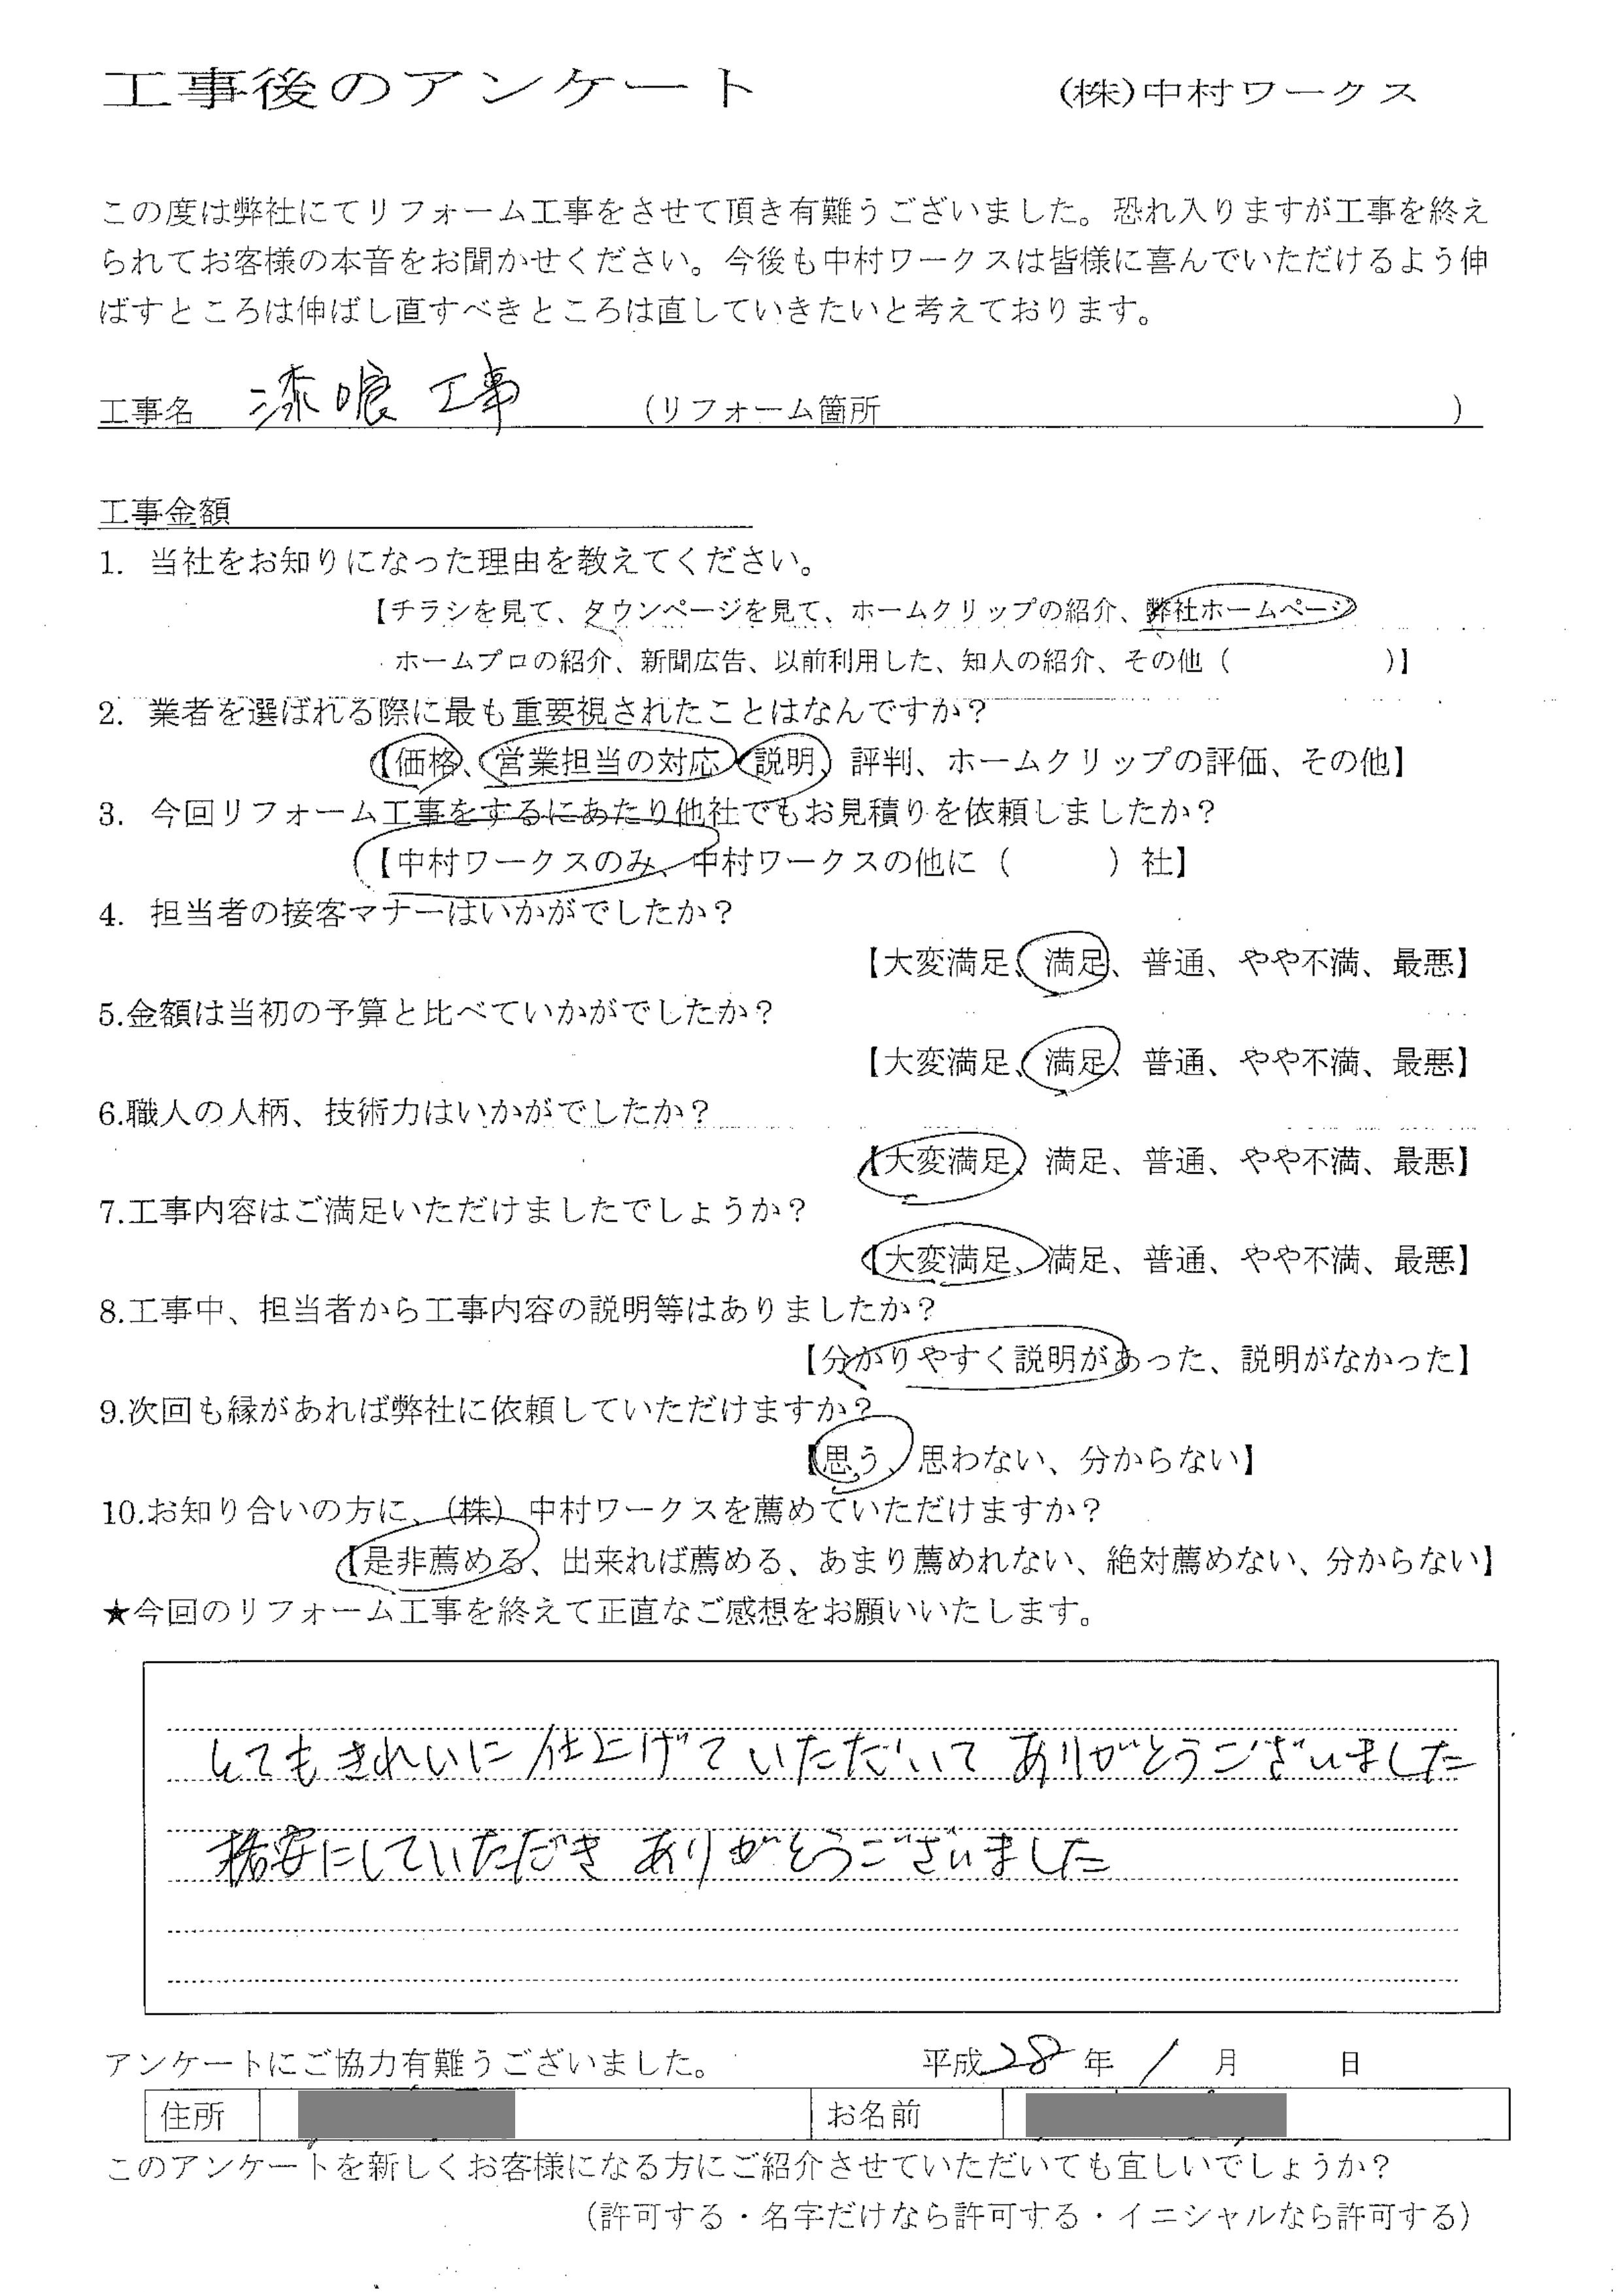 工事後のアンケート (株)中村ワークス
この度は弊社にてリフォーム工事をさせて頂き有難うございました。恐れ入りますが工事を終え
られてお客様の本音をお聞かせください。今後も中村ワークスは皆様に喜んでいただけるよう伸
ばすところは伸ばし直すべきところは直していきたいと考えております。
工事名 漆喰工事 (リフォーム箇所 )
工事金額
1. 当社をお知りになった理由を教えてください。
【チラシを見て、タウンページを見て、ホームクリップの紹介、弊社ホームページ
ホームプロの紹介、新聞広告、以前利用した、知人の紹介、その他（ )】
2. 業者を選ばれる際に最も重要視されたことはなんですか？
【価格、営業担当の対応、説明、評判、ホームクリップの評価、その他】
3. 今回リフォーム工事をするにあたり他社でもお見積りを依頼しましたか？
【中村ワークスのみ、中村ワークスの他に（ ）社】
4. 担当者の接客マナーはいかがでしたか？
【大変満足、満足、普通、やや不満、最悪】
5.金額は当初の予算と比べていかがでしたか？
【大変満足、満足、普通、やや不満、最悪】
6.職人の人柄、技術力はいかがでしたか？
【大変満足、満足、普通、やや不満、最悪】
7.工事内容はご満足いただけましたでしょうか？
【大変満足、満足、普通、やや不満、最悪】
8.工事中、担当者から工事内容の説明等はありましたか？
【分かりやすく説明があった、説明がなかった】
9.次回も縁があれば弊社に依頼していただけますか？
【思う、思わない、分からない】
10.お知り合いの方に、（株）中村ワークスを薦めていただけますか？
【是非薦める、出来れば薦める、あまり薦めれない、絶対薦めない、分からない】
★今回のリフォーム工事を終えて正直なご感想をお願いいたします。
とてもきれいに仕上げていただいて ありがとうございました
格安にしていただき ありがとうございました
アンケートにご協力有難うございました。 平成28年 1月 日
住所 お名前
このアンケートを新しくお客様になる方にご紹介させていただいても宜しいでしょうか？
（許可する・名字だけなら許可する・イニシャルなら許可する）